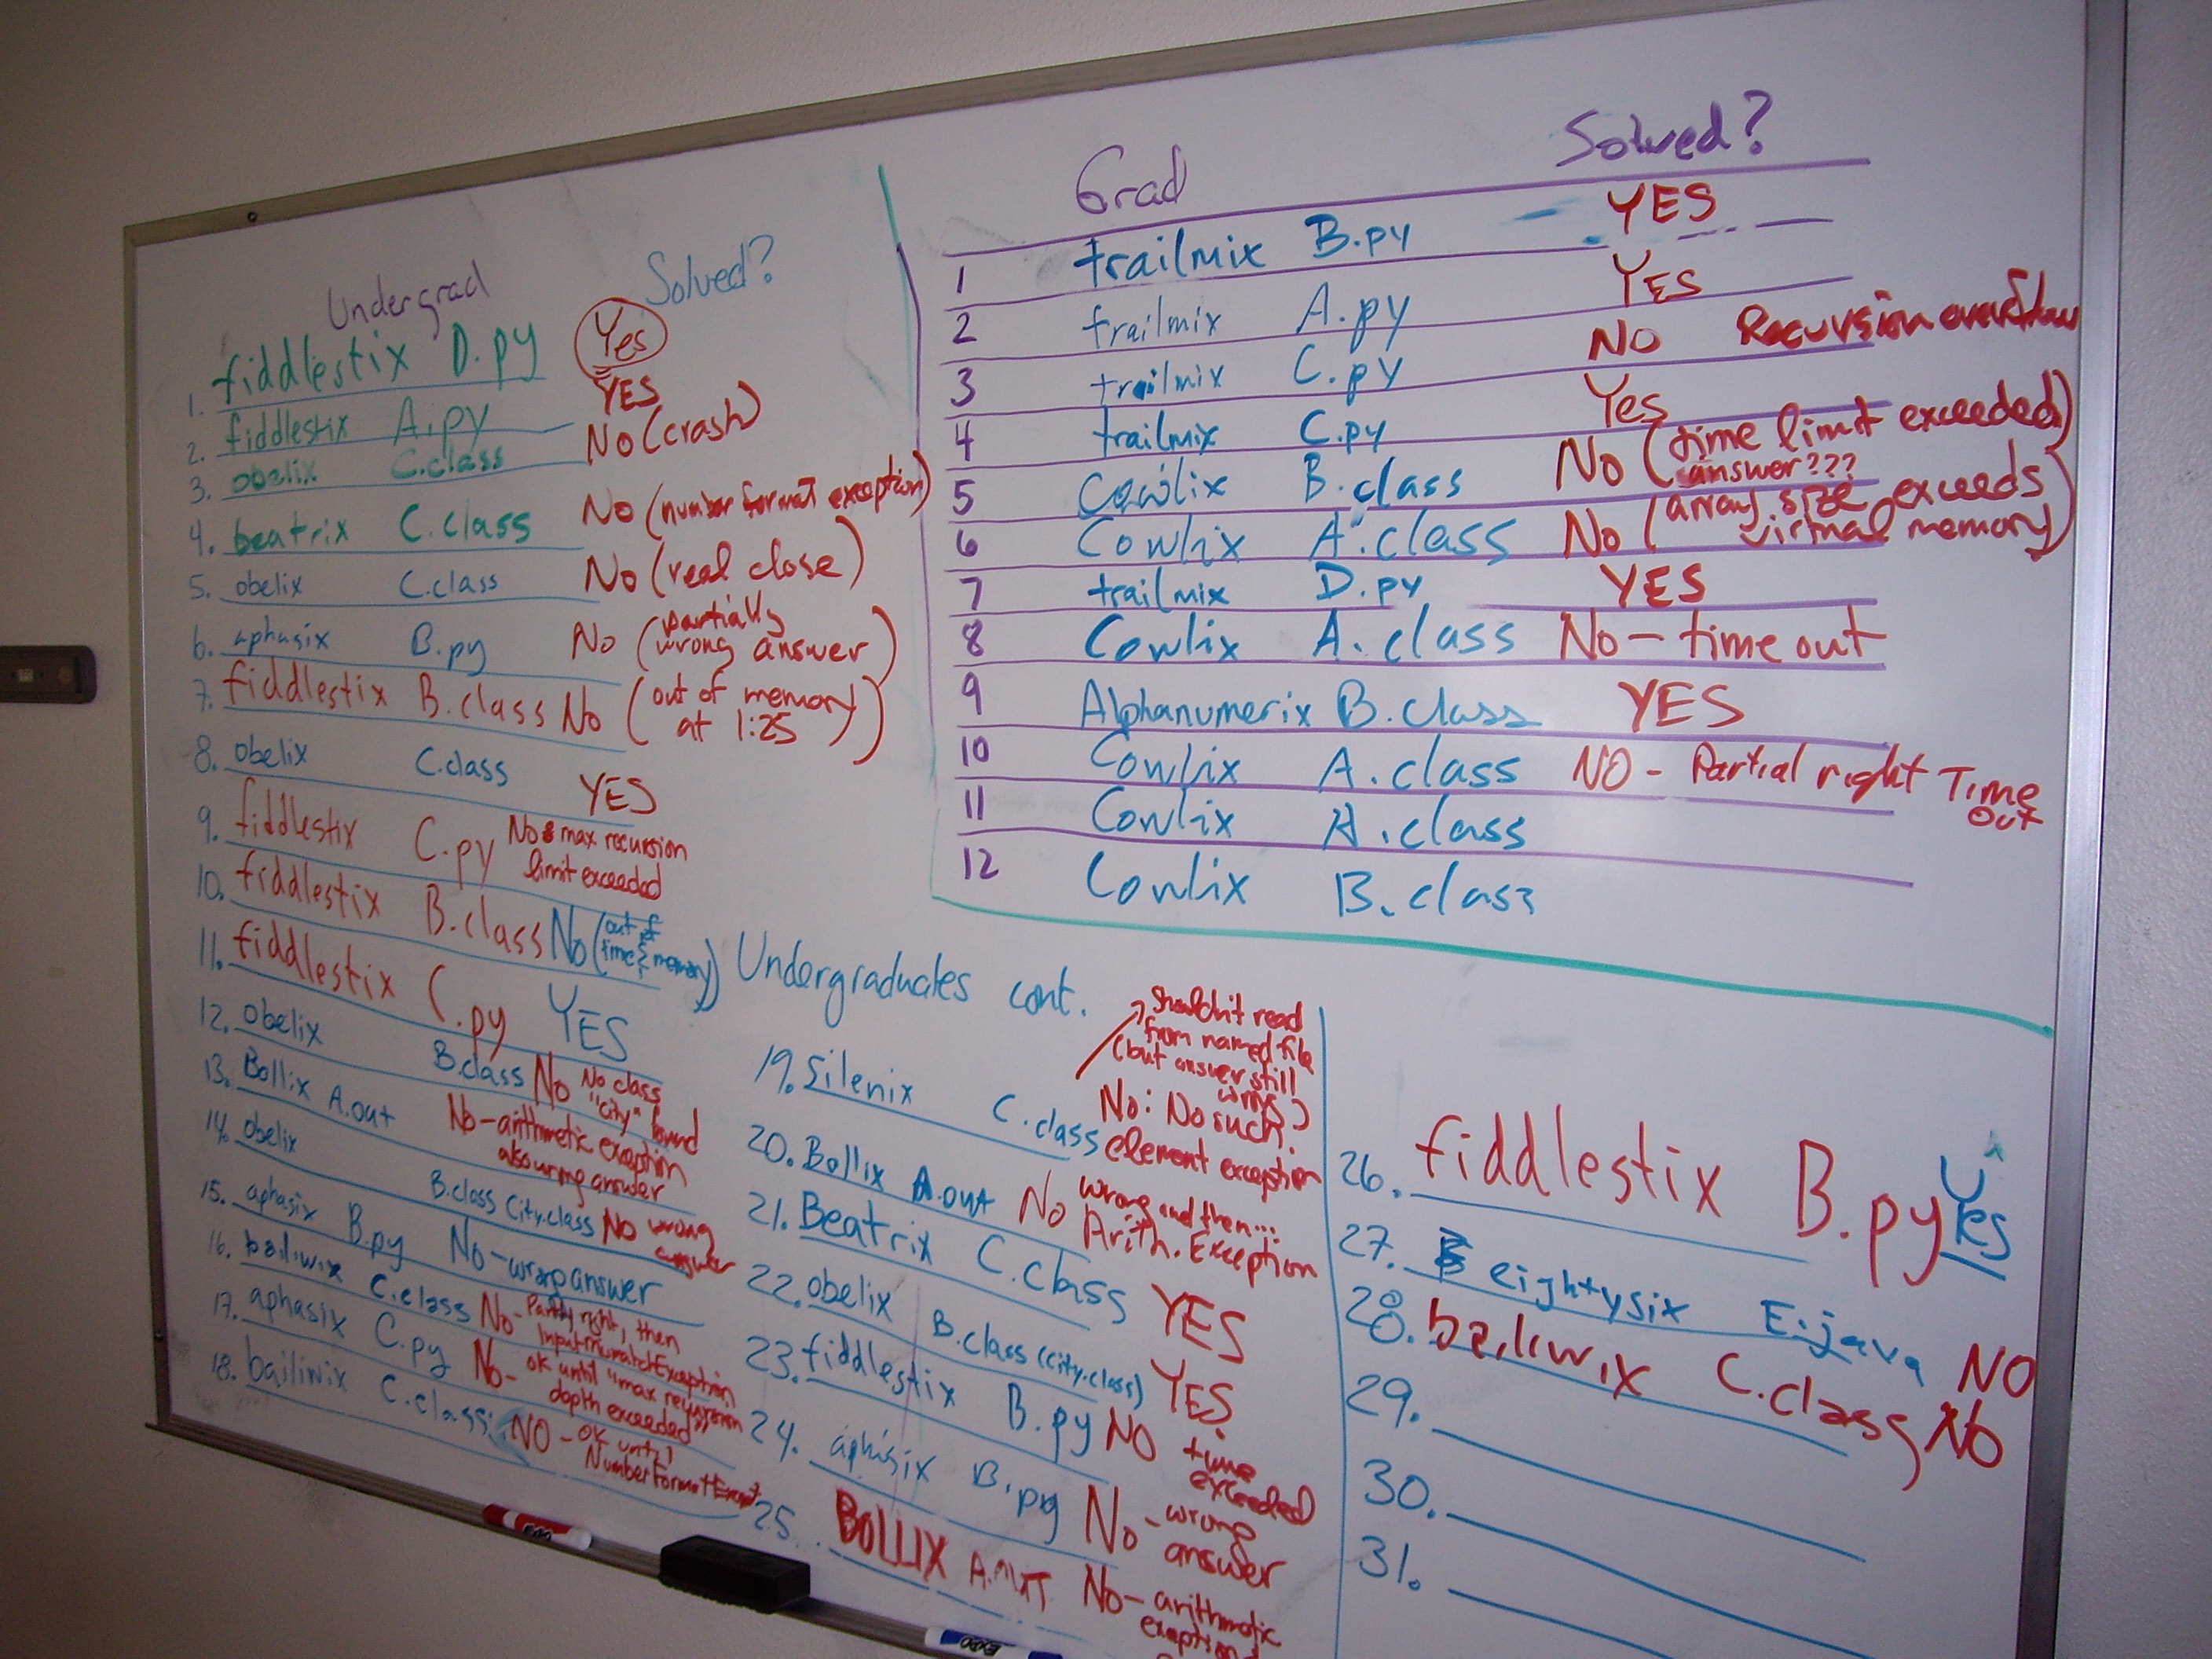 Undergrad Solved?
1. fiddlestix D.py Yes
2. fiddlestix A.py YES
3. obelix C.class No (crash)
4. beatrix C.class No (number format exception)
5. obelix C.class No (real close)
6. aphasix B.py No (partially
wrong answer)
7. fiddlestix B.class No (out of memory
at 1:25)
8. obelix C.class YES
9. fiddlestix C.py No max recursion
limit exceeded
10. fiddlestix B.class No (out of
time & memory)
11. fiddlestix C.py YES
12. obelix B.class No No class
"city" found
13. Bollix A.out No - arithmetic exception
also wrong answer
14. obelix B.class City.class No wrong
answer
15. aphasix B.py No - wrong answer
16. bailiwix C.class No - Partly right, then
InputMismatchException
17. aphasix C.py No - ok until "max recursion
depth exceeded"
18. bailiwix C.class NO - ok until
NumberFormatExcept
Grad Solved?
1 trailmix B.py YES
2 trailmix A.py YES
3 trailmix C.py NO Recursion overflow
4 trailmix C.py Yes
5 Cowlix B.class No (time limit exceeded)
answer???
6 Cowlix A.class No (array size exceeds
virtual memory)
7 trailmix D.py YES
8 Cowlix A.class No - time out
9 Alphanumerix B.class YES
10 Cowlix A.class NO - Partial right Time
out
11 Cowlix A.class
12 Cowlix B.class
Undergraduates cont.
shouldn't read
from named file
(but answer still
wrong)
19. Silenix C.class No: No such
element exception
20. Bollix A.out No wrong and then...
Arith. Exception
21. Beatrix C.class YES
22. obelix B.class (City.class) YES
23. fiddlestix B.py NO time
exceeded
24. aphasix B.py No - wrong
answer
25. BOLLIX A.OUT No - arithmetic
exception
26. fiddlestix B.py Yes
27. eightysix E.java NO
28. bailiwix C.class No
29.
30.
31.